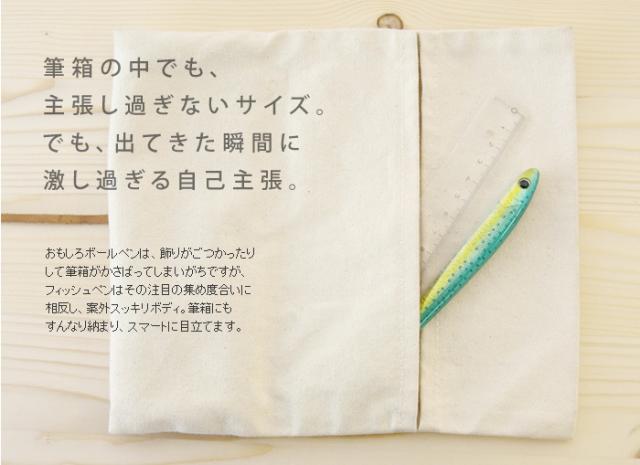 筆箱の中でも、
主張し過ぎないサイズ。
でも、出てきた瞬間に
激し過ぎる自己主張。
おもしろボールペンは、飾りがごつかったり
して筆箱がかさばってしまいがちですが、
フィッシュペンはその注目の集め度合いに
相反し、案外スッキリボディ。筆箱にも
すんなり納まり、スマートに目立てます。